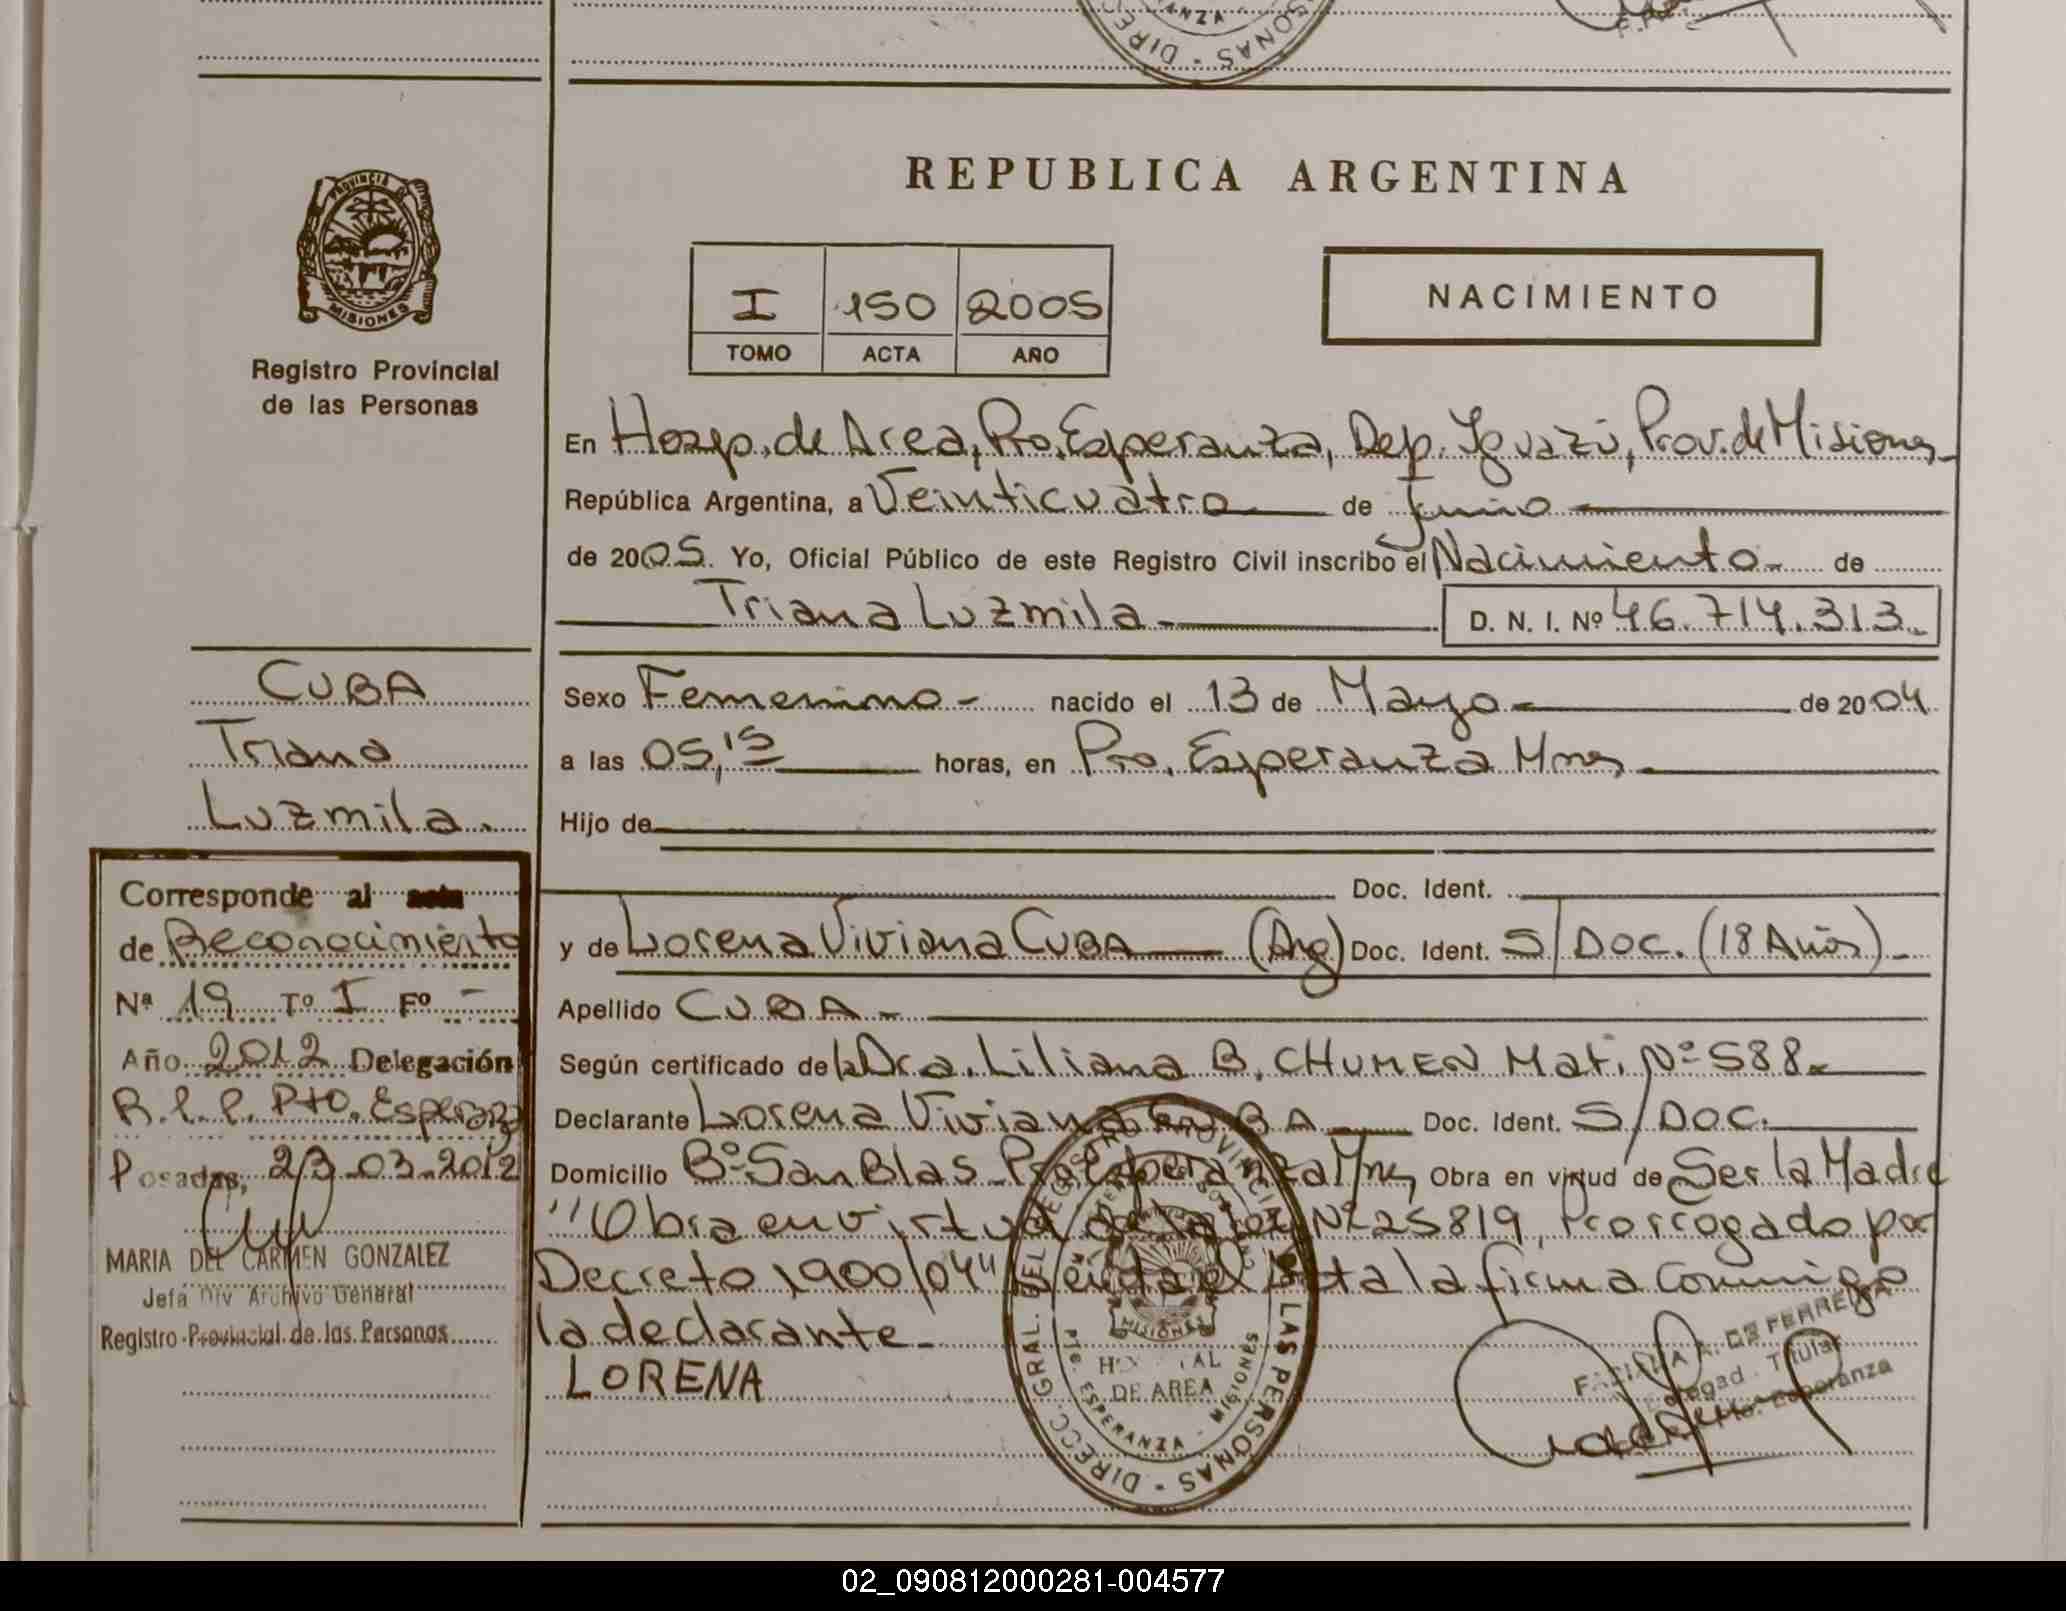 REPUBLICA ARGENTINA
PROVINCIA
MISIONES
Registro Provincial
de las Personas
I 150 2005
TOMO ACTA AÑO
NACIMIENTO
En Hosp. de Area, Pto. Esperanza, Dep. Iguazú, Prov. de Misiones
República Argentina, a Veinticuatro de Junio
de 2005. Yo, Oficial Público de este Registro Civil inscribo el Nacimiento de
Triana Luzmila D. N. I. Nº 46.714.313
Sexo Femenino nacido el 13 de Mayo de 2004
a las 05,15 horas, en Pto. Esperanza Mnes
Hijo de
Doc. Ident.
y de Lorena Viviana CUBA (Arg) Doc. Ident. S/DOC. (18 Años)
Apellido CUBA
Según certificado de la Dra. Liliana B. CHUMEN Mat. Nº 588
Declarante Lorena Viviana CUBA Doc. Ident. S/DOC.
Domicilio Bº San Blas Pto Esperanza Mnes Obra en virtud de Ser la Madre
"Obra en virtud de la Ley Nº 25819, prorrogado por
Decreto 1900/04" Leída el Acta la firma conmigo
la declarante
LORENA
CUBA
Triana
Luzmila
Corresponde al acta
de Reconocimiento
Nª 19 Tº I Fº -
Año 2012 Delegación
R.P.P. Pto. Esperanza
Posadas, 23-03-2012
MARIA DEL CARMEN GONZALEZ
Jefa Div Archivo General
Registro Provincial de las Personas
DIRECC. GRAL. DEL REGISTRO PROVINCIAL DE LAS PERSONAS
MISIONES
HOSPITAL
DE AREA
PTO. ESPERANZA - MISIONES
DE FERREIRA
Delegad. Titular
Pto. Esperanza
02_090812000281-004577